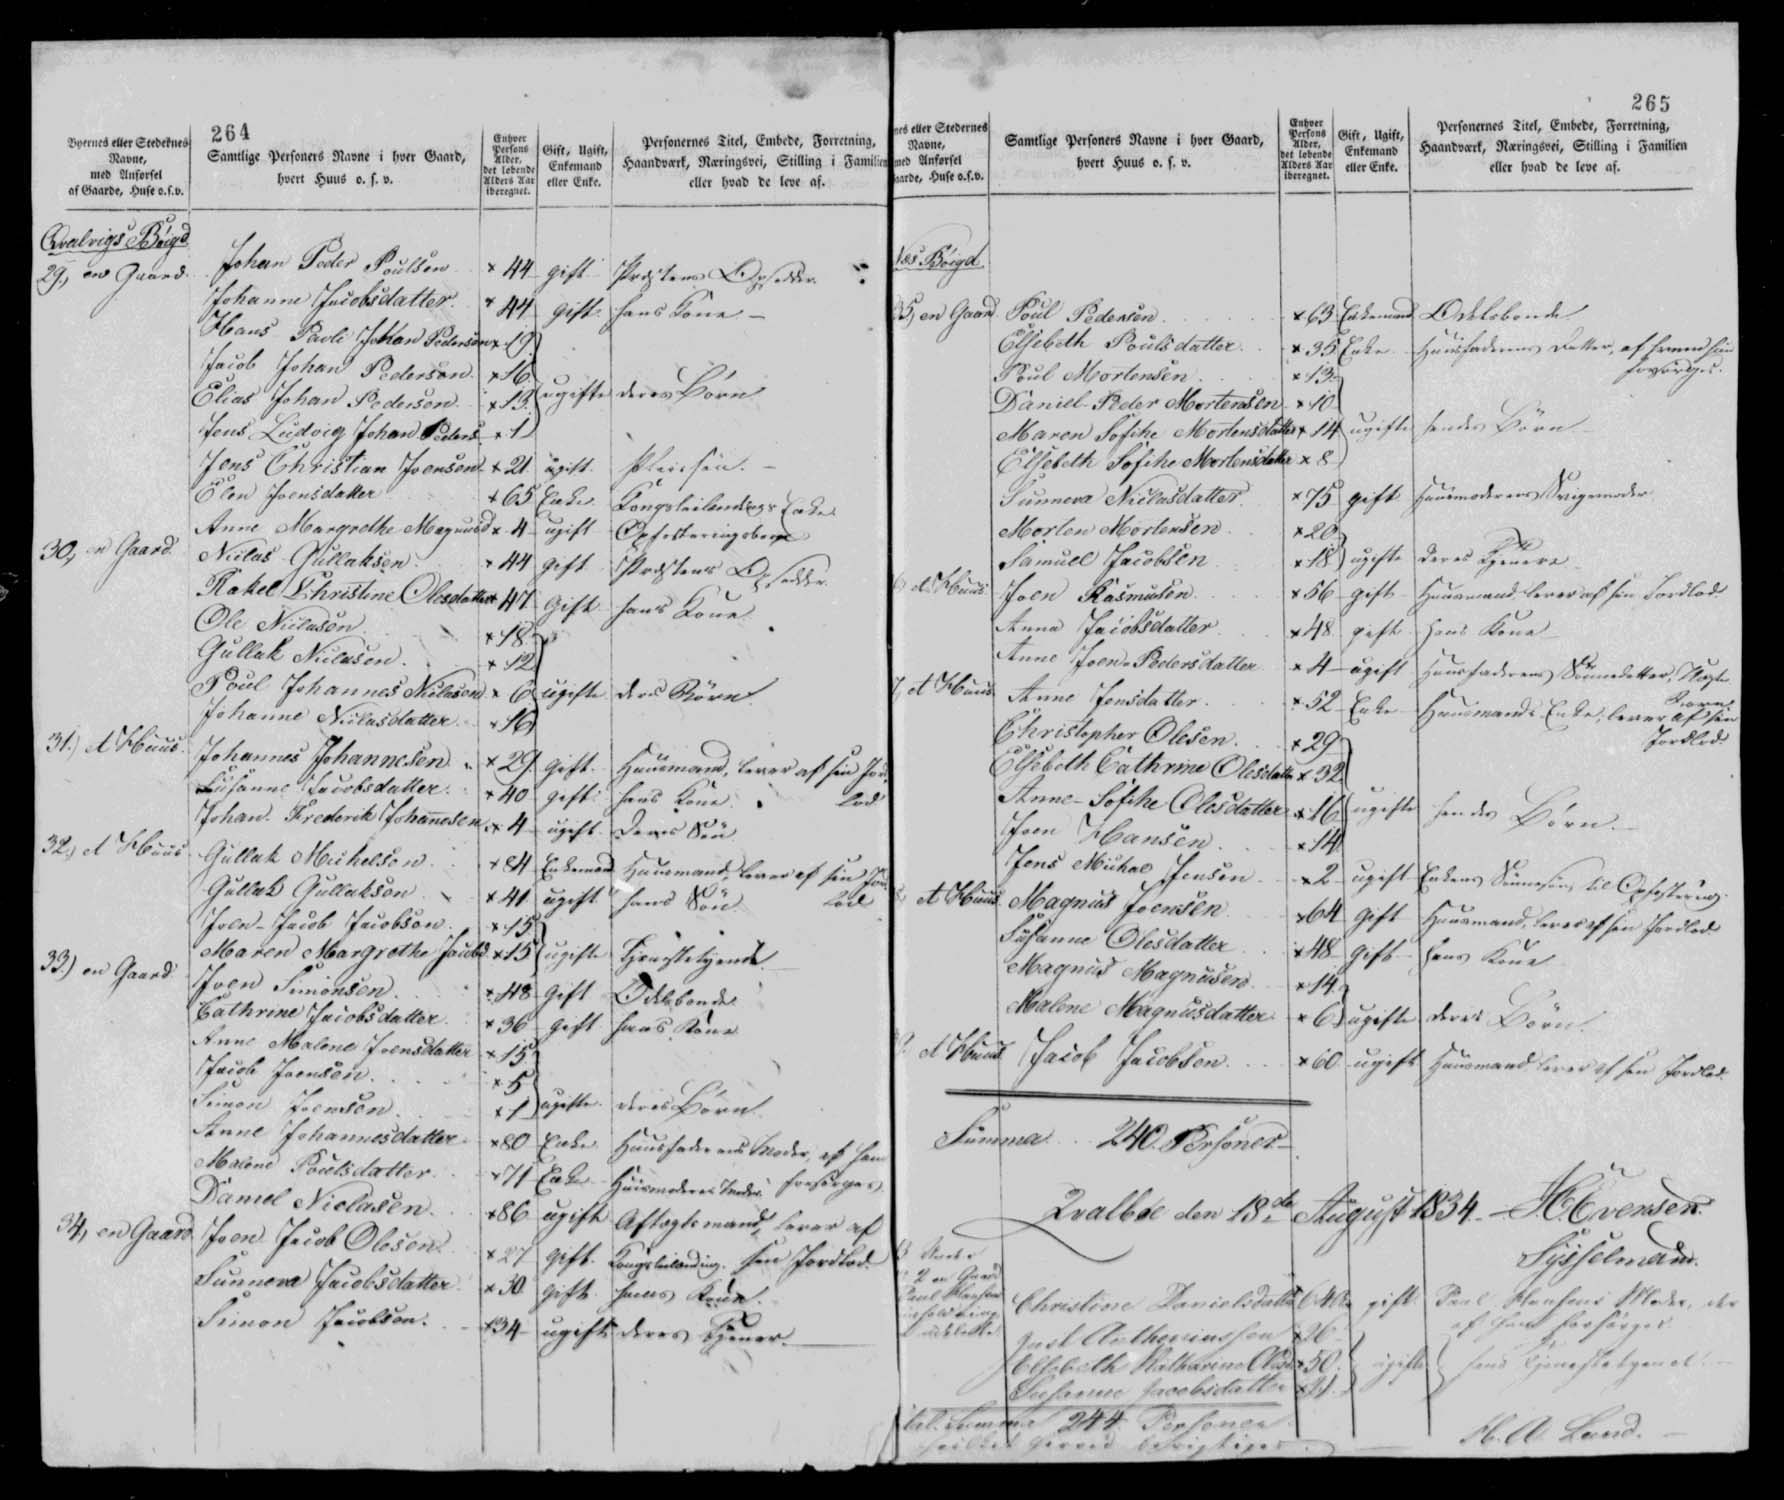 264
Byernes eller Stedernes Navne, med Anførsel af Gaarde, Huse o.s.v.
Samtlige Personers Navne i hver Gaard, hvert Huus o. s. v.
Enhver Persons Alder, det løbende Alders Aar iberegnet.
Gift, Ugift, Enkemand eller Enke.
Personernes Titel, Embede, Forretning, Haandværk, Næringsvei, Stilling i Familien eller hvad de leve af.
Qvalvigs Bøigd
29, en Gaard. Johan Peder Poulsen × 44 gift Præstens Opsidder
Johanne Jacobsdatter × 44 gift hans Kone
Hans Pavli Johan Pedersen × 19
Jacob Johan Pedersen × 16
Elias Johan Pedersen × 13 ugifte deres Børn
Jens Ludvig Johan Peders. × 1
Jens Christian Joensen × 21 ugift Pleiesøn
Elen Joensdatter × 65 Enke Kongsleilendings Enke
Anne Margrethe Magnusd × 4 ugift Opfostringsbarn
30, en Gaard. Niclas Gullaksen × 44 gift Præstens Opsidder
Rakel Christine Olesdatter × 47 Gift hans Kone
Ole Niclasen × 18
Gullak Niclasen × 12
Poul Johannes Niclasen × 6 ugifte deres Børn
Johanne Niclasdatter × 16
31.) et Huus. Johannes Johannesen × 29 gift Huusmand, lever af sin Jordlod
Susanne Jacobsdatter × 40 gift hans Kone
Johan Frederik Johannesen × 4 ugift deres Søn
32.) et Huus Gullak Michelsen × 84 Enkemand Huusmand, lever af sin Jordlod
Gullak Gullaksen × 41 ugift hans Søn
Joen Jacob Jacobsen × 15
Maren Margrethe Jacobsd. × 15 ugifte Tjenestetyende
33.) en Gaard. Joen Simonsen × 48 Gift Odelsbonde
Cathrine Jacobsdatter × 36 gift hans Kone
Anne Malene Joensdatter × 15
Jacob Joensen × 5
Simon Joensen × 1 ugifte deres Børn
Anne Johannesdatter × 80 Enke Huusfaderens Moder, af ham
Malene Poulsdatter × 71 Enke Huusmoderens Moder forsørges
Daniel Niclasen × 86 ugift Aftægtsmand, lever af sin Jordlod
34, en Gaard Joen Jacob Olesen × 27 gift Kongsleilending
Sunneva Jacobsdatter × 30 gift hans Kone
Simon Jacobsen × 34 ugift deres Tjener
265
nes eller Stedernes Navne, med Anførsel Gaarde, Huse o.s.v.
Samtlige Personers Navne i hver Gaard, hvert Huus o. s. v.
Enhver Persons Alder, det løbende Alders Aar iberegnet.
Gift, Ugift, Enkemand eller Enke.
Personernes Titel, Embede, Forretning, Haandværk, Næringsvei, Stilling i Familien eller hvad de leve af.
Næs Bøigd
35, en Gaard Poul Pedersen × 63 Enkemand Odelsbonde
Elsebeth Poulsdatter × 35 Enke Huusfaderens Datter, af hvem hun forsørges.
Poul Mortensen × 13
Daniel Peder Mortensen × 10
Maren Sofihe Mortensdatter × 14 ugifte hendes Børn
Elsebeth Sofihe Mortensdatter × 8
Sunneva Niclasdatter × 75 gift Huusmoderens Svigermoder
Morten Mortensen × 20
Samuel Jacobsen × 18 ugifte deres Tjenere
et Huus Joen Rasmusen × 56 gift Huusmand lever af sin Jordlod
Anna Jacobsdatter × 48 gift hans Kone
Anne Joen-Pedersdatter × 4 ugift Huusfaderens Sønnedatter,
7, et Huus Anne Jensdatter × 52 Enke Huusmands Enke, lever af sin Jordlod
Christopher Olesen × 29
Elsebeth Cathrine Olesdatter × 32
Anne-Sofihe Olesdatter × 16 ugifte hendes Børn
Joen Hansen × 14
Jens Michal Jensen × 2 ugift Enkens Sønnesøn, til Opfostring
et Huus Magnus Joensen × 64 gift Huusmand, lever af sin Jordlod
Susanne Olesdatter × 48 gift hans Kone
Magnus Magnusen × 14
Malene Magnusdatter × 6 ugifte deres Børn
et Huus Jacob Jacobsen × 60 ugift Huusmand lever af sin Jordlod
Summa 240 Personer
Qvalbøe den 18de August 1834 H. Evensen
Sysselmand.
Christine Danielsdatter 64 Enke gift Poul Hansens Moder, der af ham forsørges
× 26
Elsebeth Katharina Olesd × 50 ugifte hans Tjenestetyende
Susanne Jacobsdatter × 21
Summa 244 Personer
hvilket herved berigtiges
H. A. Lund.